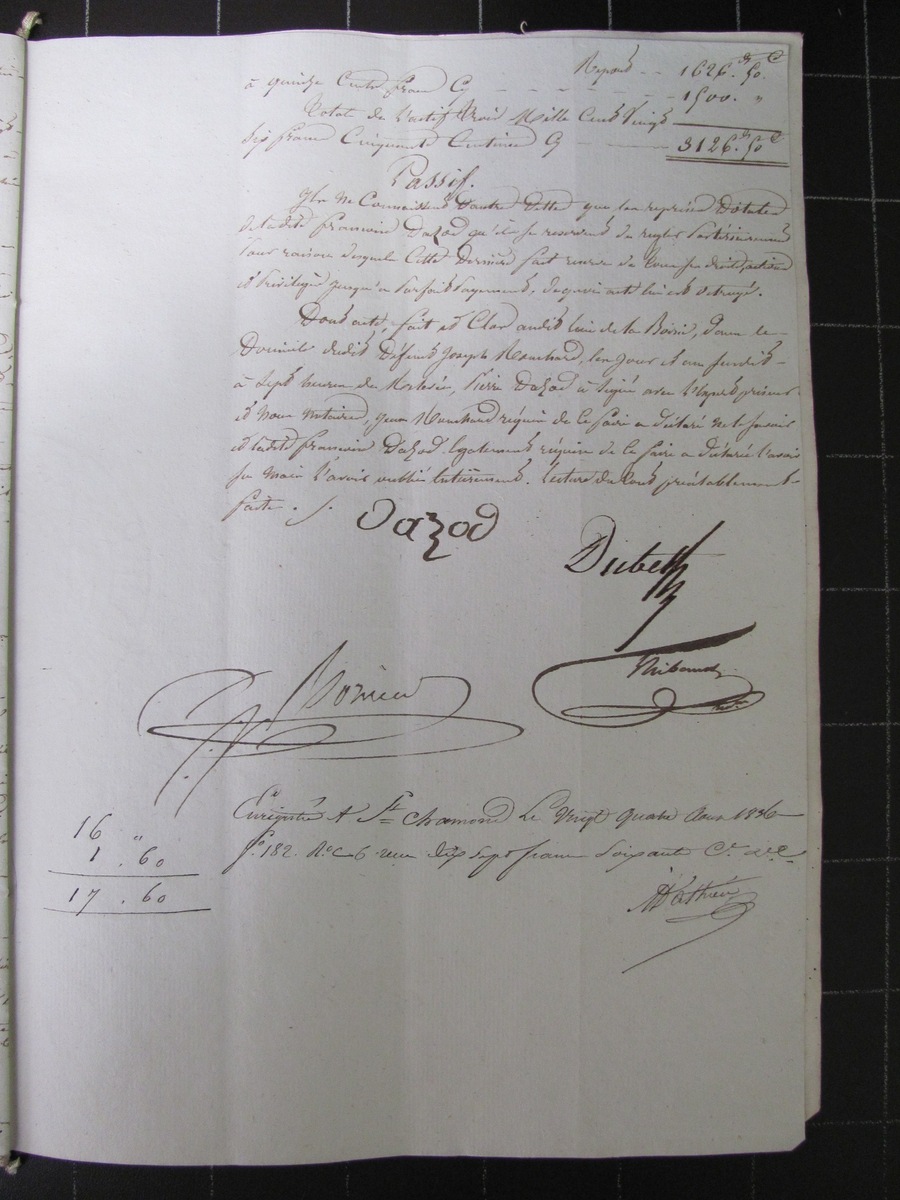 Report - - 1626.f 50.c
à quinze Cents francs Cy - - - - - - - 1500. "
Total de l'actif trois Mille Cent Vingt
Six francs Cinquante Centimes Cy - - - 3126.f 50.c
Passif.
Ils ne Connaissent d'autre Dette que les reprises Dotales
de ladite françoise Dazod qu'ils se reservent de regler Postérieurement
Pour raison desquels Cette Dernière fait reserve de tous ses droits, actions
et Privilèges jusqu'à Parfait Payement, de quoi acte lui est Octroyé.
Dont acte, fait et Clos audit lieu de la dans le
Domicile dudit Défunt Joseph Mouchard, les jour et an susdits
à Sept heures du Pierre Dazod a Signé avec l'Expert priseur
et Nous Notaire, Jean Mouchard réquis de le faire a déclaré ne le Savoir
et ladite françoise Dazod Egalement réquise de le faire a déclaré l'avoir
su Mais l'avoir oublié Entièrement. Lecture du tout préalablement
faite. /.
Dazod
Dubett
Thibaud
Enrégistré A St Chamond Le Vingt quatre 1836
16 "
f.o 182. R.o C. 6 reçu dix Sept francs Soixante C.es
1 . 60
17 . 60
Mathieu